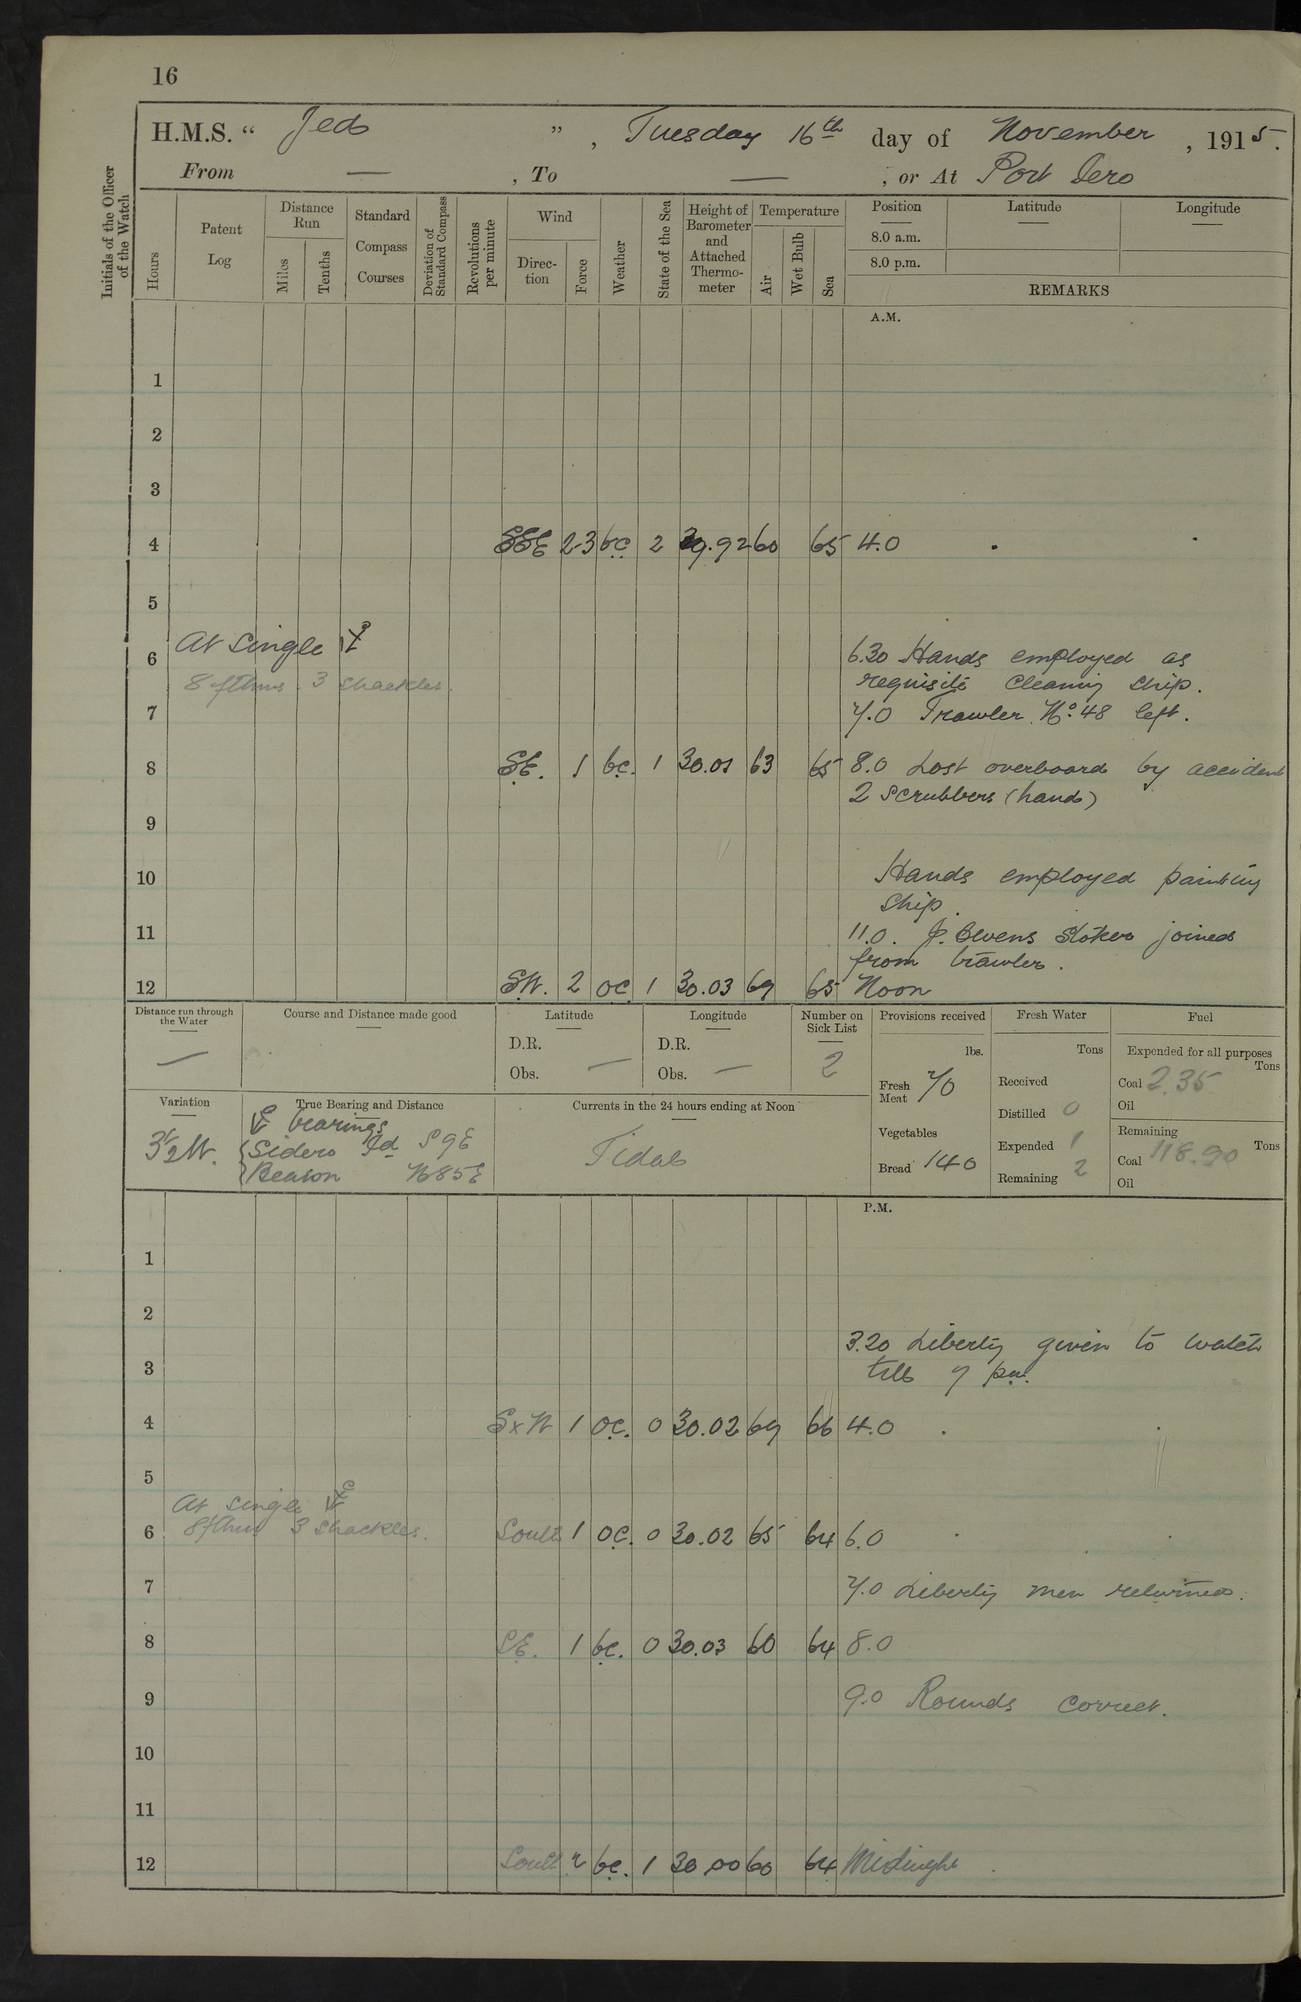 16
H.M.S. “ Jed ” , Tuesday 16th day of November , 1915.
From — , To — , or At Port Iero
Initials of the Officer of the Watch
Hours
Patent Log
Distance Run
Miles
Tenths
Standard Compass Courses
Deviation of Standard Compass
Revolutions per minute
Wind
Direction
Force
Weather
State of the Sea
Height of Barometer and Attached Thermometer
Temperature
Air
Wet Bulb
Sea
Position
8.0 a.m.
8.0 p.m.
Latitude
Longitude
REMARKS
A.M.
1
2
3
4 SSE 2-3 bc 2 29.92 60 65 4.0
5
At single
6 6.30 Hands employed as
8 fthms. 3 shackles. requisite cleaning ship.
7 7.0 Trawler No. 48 left.
8 SE. 1 bc. 1 30.01 63 65 8.0 Lost overboard by accident
2 Scrubbers (hand)
9
10 Hands employed painting
ship.
11 11.0. J. Stoker joined
from trawler.
12 SW. 2 oc 1 30.03 69 65 Noon
Distance run through the Water
—
Course and Distance made good
Latitude
D.R.
Obs. —
Longitude
D.R.
Obs. —
Number on Sick List
2
Provisions received
lbs.
Fresh Meat 70
Vegetables
Bread 140
Fresh Water
Tons
Received
Distilled 0
Expended 1
Remaining 2
Fuel
Expended for all purposes
Tons
Coal 2.35
Oil
Remaining
Tons
Coal 118.90
Oil
Variation
3½W.
True Bearing and Distance
bearings
Sidero Id S9E
Beacon N85E
Currents in the 24 hours ending at Noon
Tidal
P.M.
1
2
3.20 Liberty given to watch
3 till 7 pm.
4 SxW 1 oc. 0 30.02 69 66 4.0
5
At single
6 8 fthms 3 shackles. South 1 oc. 0 30.02 65 64 6.0
7 7.0 Liberty men returned.
8 SE. 1 bc. 0 30.03 60 64 8.0
9 9.0 Rounds correct.
10
11
12 South 2 bc. 1 30.00 60 64 Midnight